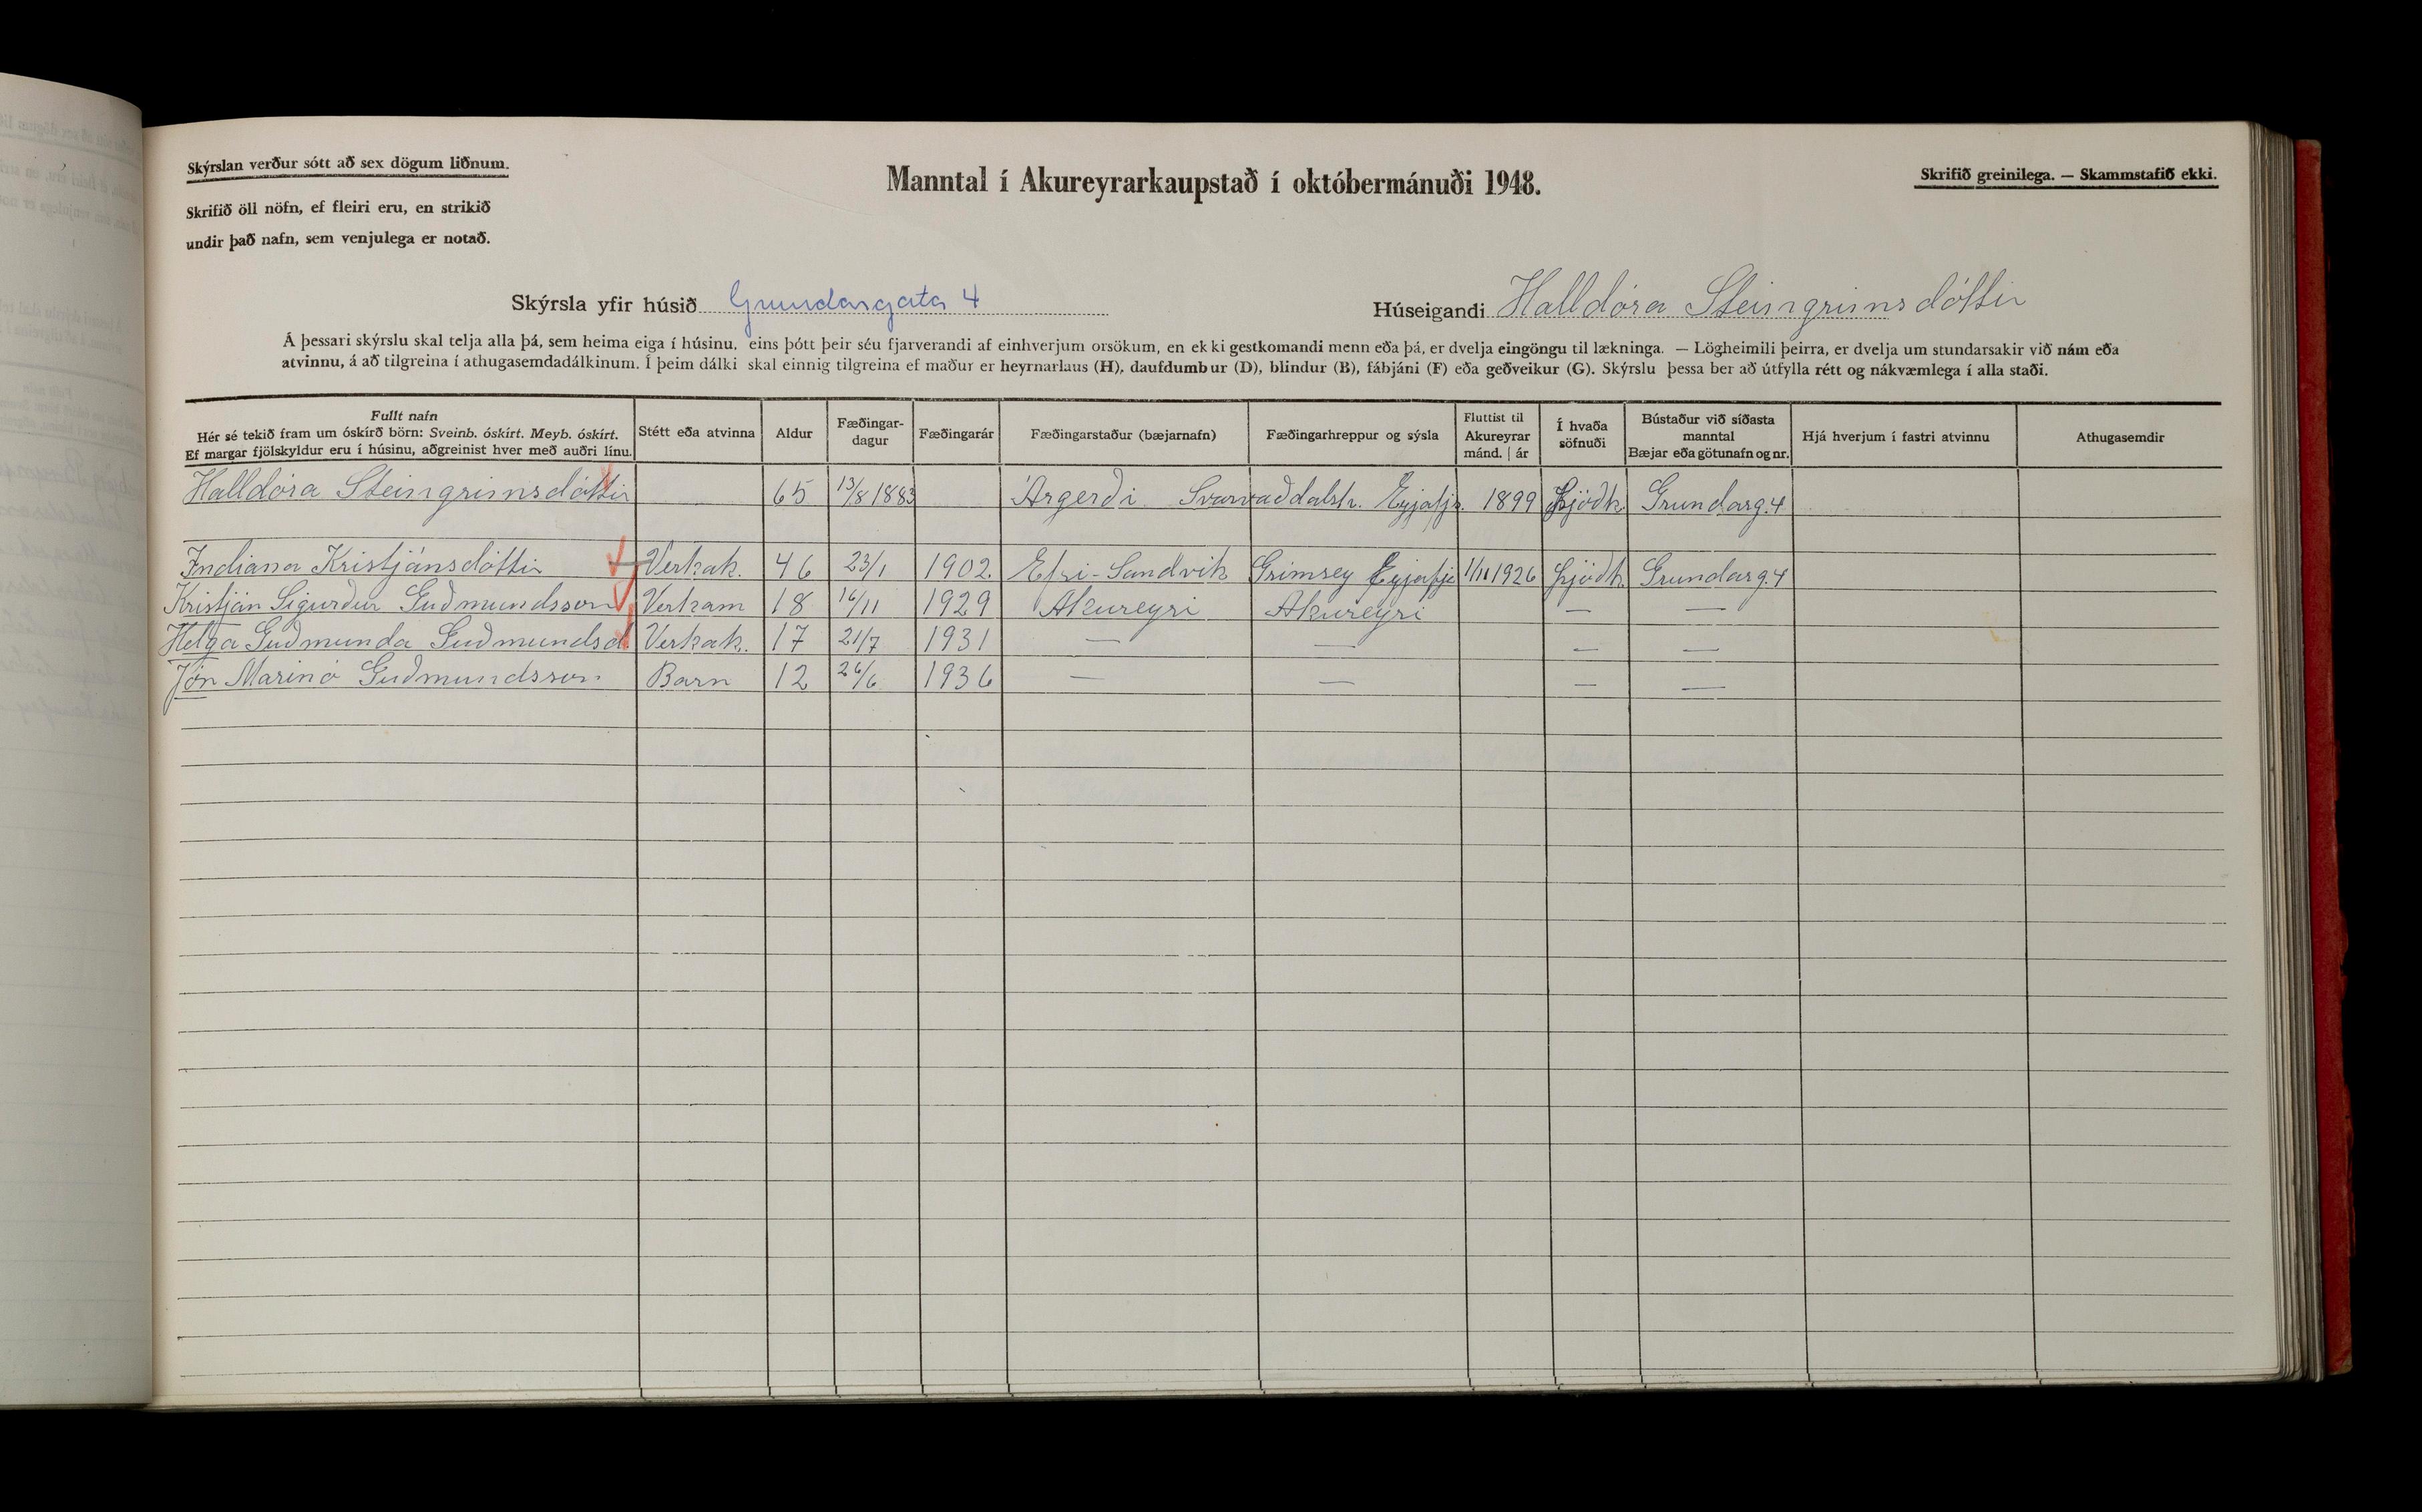 Skýrslan verður sótt að sex dögum liðnum.
Skrifið öll nöfn, ef fleiri eru, en strikið
undir það nafn, sem venjulega er notað.
Manntal í Akureyrarkaupstað í októbermánuði 1948.
Skrifið greinilega. — Skammstafið ekki.
Skýrsla yfir húsið Grundargata 4
Húseigandi Halldóra Steingrimsdóttir
Á þessari skýrslu skal telja alla þá, sem heima eiga í húsinu, eins þótt þeir séu fjarverandi af einhverjum orsökum, en ekki gestkomandi menn eða þá, er dvelja eingöngu til lækninga. — Lögheimili þeirra, er dvelja um stundarsakir við nám eða
atvinnu, á að tilgreina í athugasemdadálkinum. Í þeim dálki skal einnig tilgreina ef maður er heyrnarlaus (H), daufdumbur (D), blindur (B), fábjáni (F) eða geðveikur (G). Skýrslu þessa ber að útfylla rétt og nákvæmlega í alla staði.
Fullt nafn
Hér sé tekið fram um óskírð börn: Sveinb. óskírt. Meyb. óskírt.
Ef margar fjölskyldur eru í húsinu, aðgreinist hver með auðri línu.
Stétt eða atvinna
Aldur
Fæðingar-
dagur
Fæðingarár
Fæðingarstaður (bæjarnafn)
Fæðingarhreppur og sýsla
Fluttist til
Akureyrar
mánd. | ár
Í hvaða
söfnuði
Bústaður við síðasta
manntal
Bæjar eða götunafn og nr.
Hjá hverjum í fastri atvinnu
Athugasemdir
Halldóra Steingrimsdóttir 65 13/8 1883 Árgerði Svarvaðdalsh. Eyjafjs. 1899 Þjóðk. Grundarg. 4
Indiana Kristjánsdóttir Verkak. 46 23/1 1902. Efri-Sandvik Grimsey Eyjafjs 1/11 1926 Þjóðk. Grundarg. 4
Kristján Sigurður Guðmundsson Verkam 18 16/11 1929 Akureyri Akureyri — —
Helga Guðmunda Guðmundsd Verkak. 17 21/7 1931 — — — —
Jón Marinó Guðmundsson Barn 12 26/6 1936 — — — —